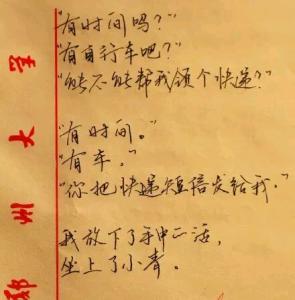 鄭州大学
"有时间吗?"
"有自行车吧?"
"能不能帮我领个快递?"
"有时间。"
"有车。"
"你把快递短信发给我。"
我放下了手中之活,
坐上了小青。